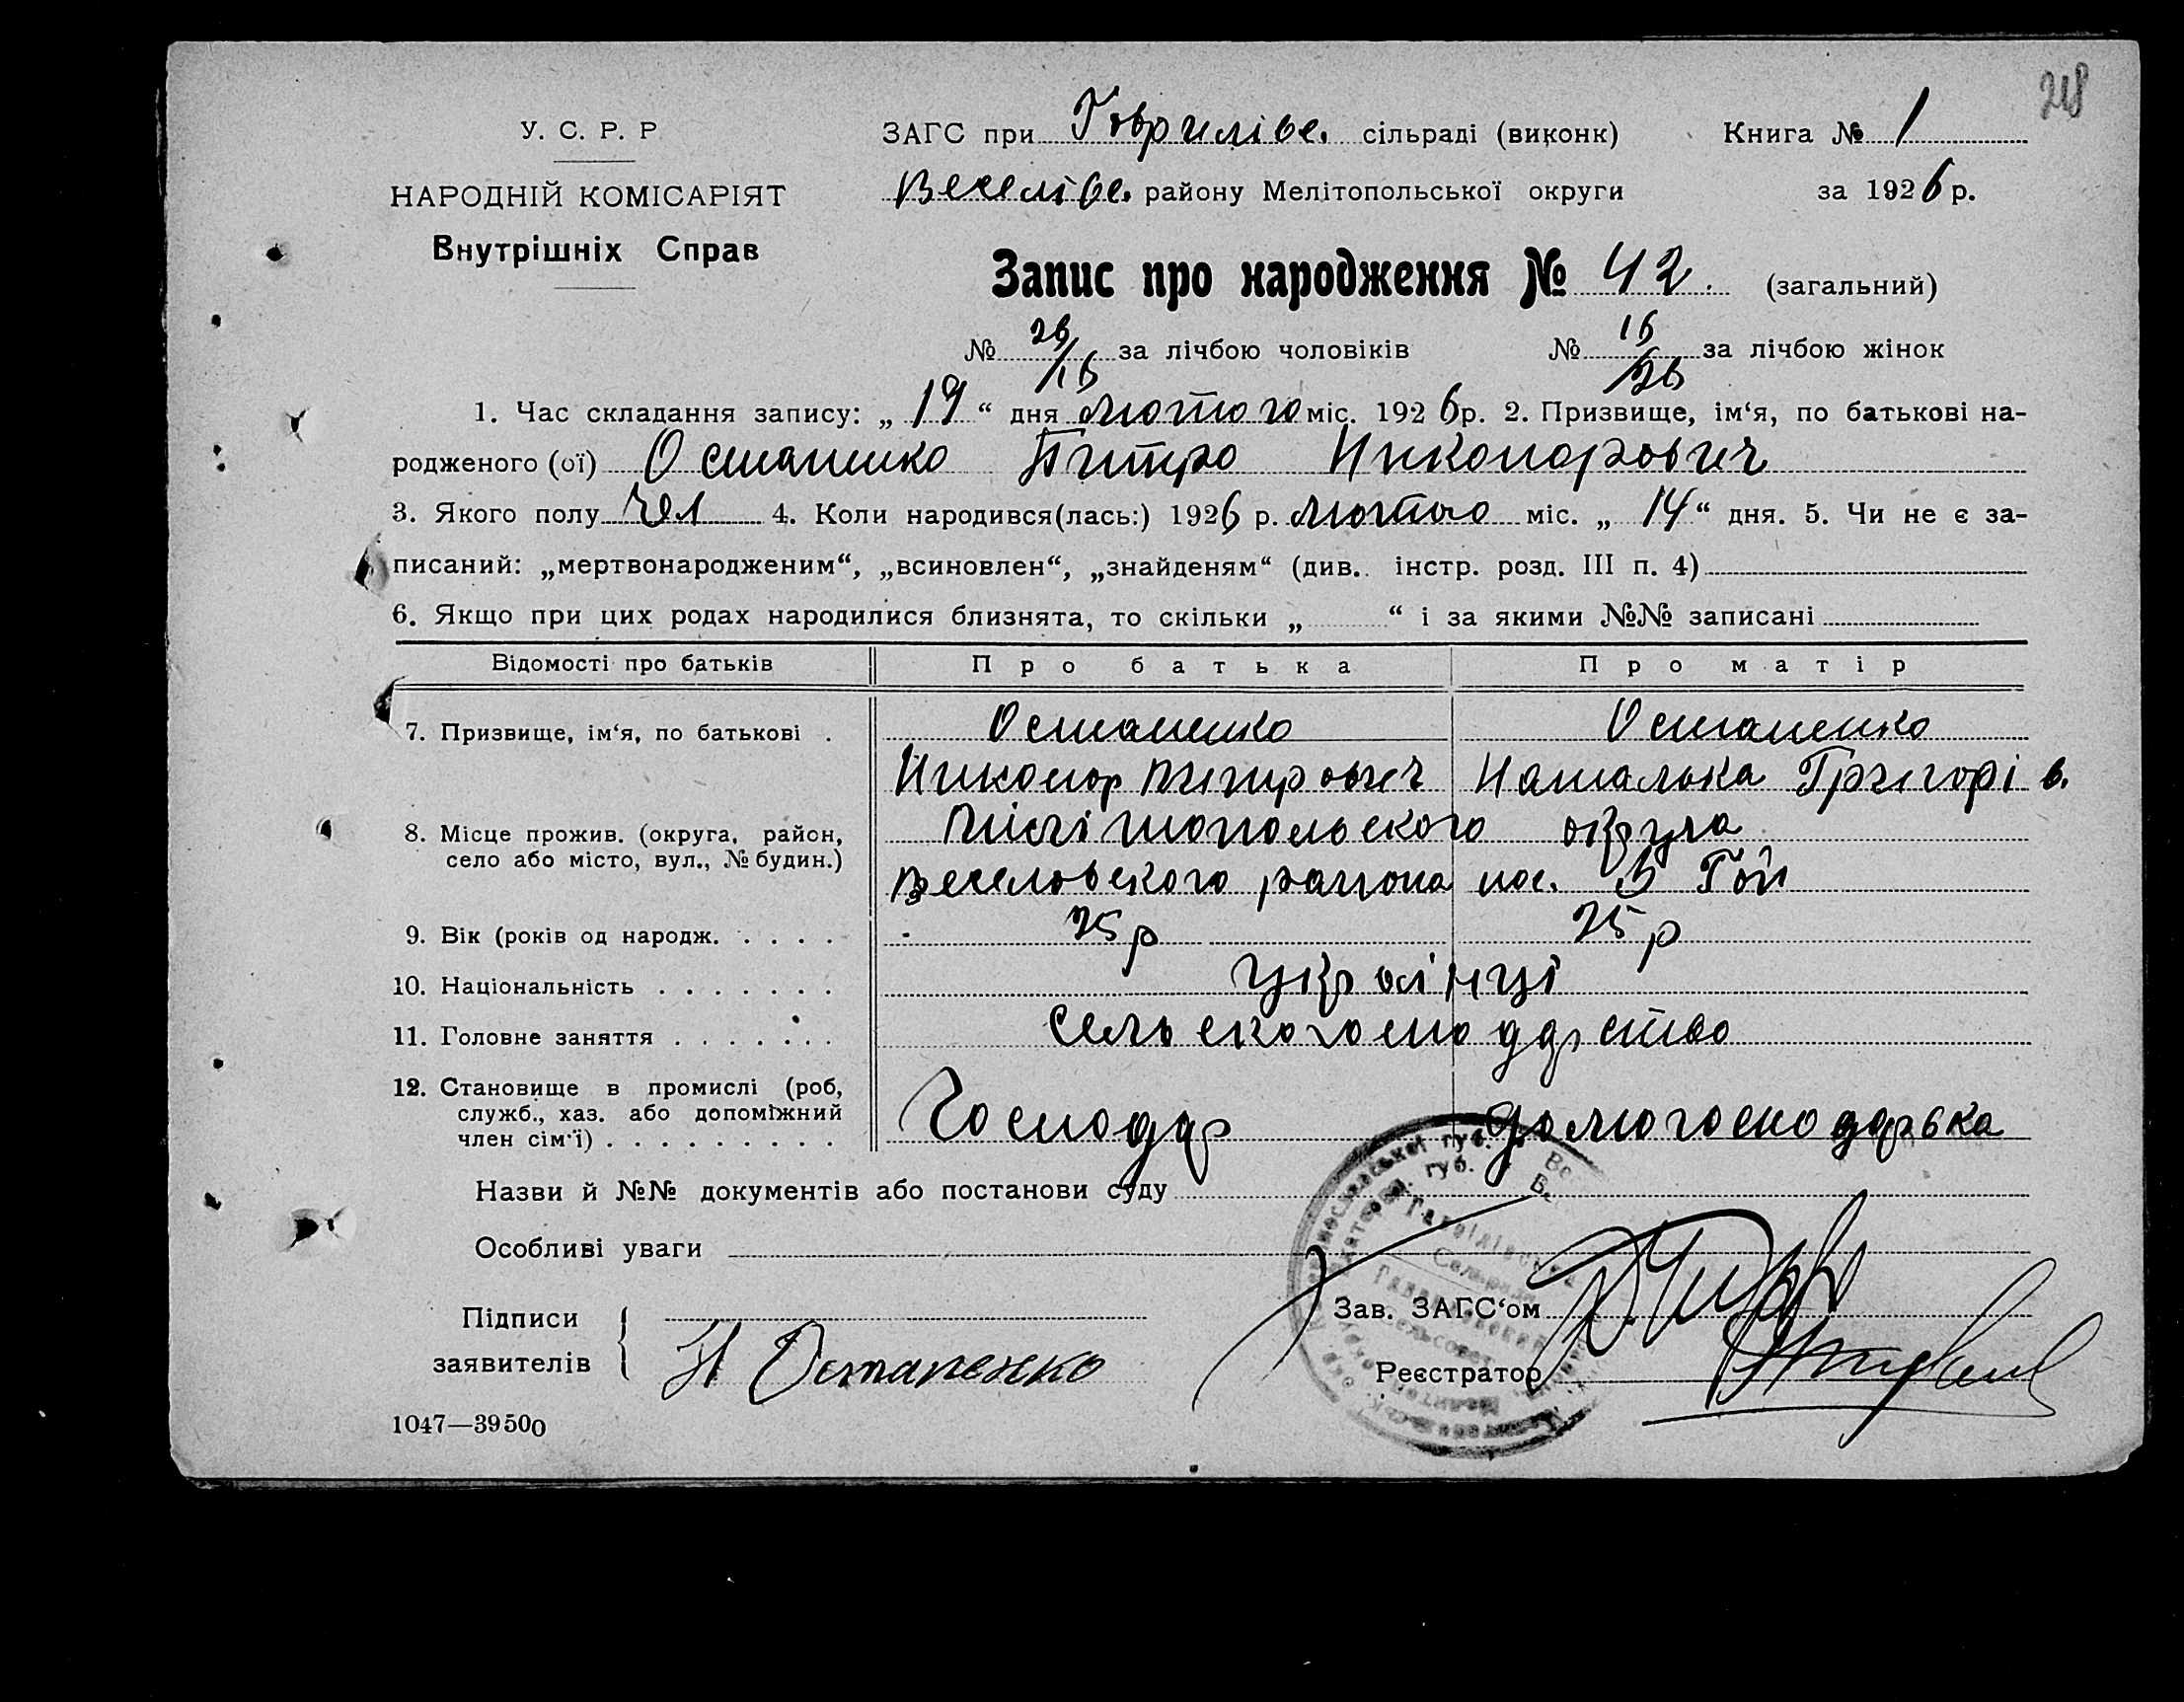 218
У. С. Р. Р
НАРОДНІЙ КОМІСАРІЯТ
Внутрішніх Справ
ЗАГС при Гаврилівс. сільраді (виконк) Книга № 1
Веселівс. району Мелітопольської округи за 1926 р.
Запис про народження № 42. (загальний)
№ 26/16 за лічбою чоловіків № 16/26 за лічбою жінок
1. Час складання запису: „19“ дня лютого міс. 1926 р. 2. Призвище, ім‘я, по батькові на-
родженого (ої) Остапенко Питро Никонорович
3. Якого полу чол 4. Коли народився(лась:) 1926 р. лютого міс. „14“ дня. 5. Чи не є за-
писаний: „мертвонародженим“, „всиновлен“, „знайденям“ (див. інстр. розд. III п. 4)
6. Якщо при цих родах народилися близнята, то скільки „ “ і за якими №№ записані
Відомості про батьків Про батька Про матір
7. Призвище, ім‘я, по батькові . Остапенко Остапенко
Никонор Питрович Наталька Григорів.
8. Місце прожив. (округа, район, село або місто, вул., № будин.) Мілітопольского округа
Веселовского района пос.
9. Вік (років од народж. . . . . 25 р 25 р
10. Національність . . . . . . . Українці
11. Головне заняття . . . . . . . Сельскогосподарство
12. Становище в промислі (роб, служб., хаз. або допоміжний член сім‘ї) . . . . . . . . . Господар домогосподарька
Назви й №№ документів або постанови суду
Особливі уваги
Підписи заявителів Н Остапенко
Зав. ЗАГС‘ом
Реєстратор
1047—39500